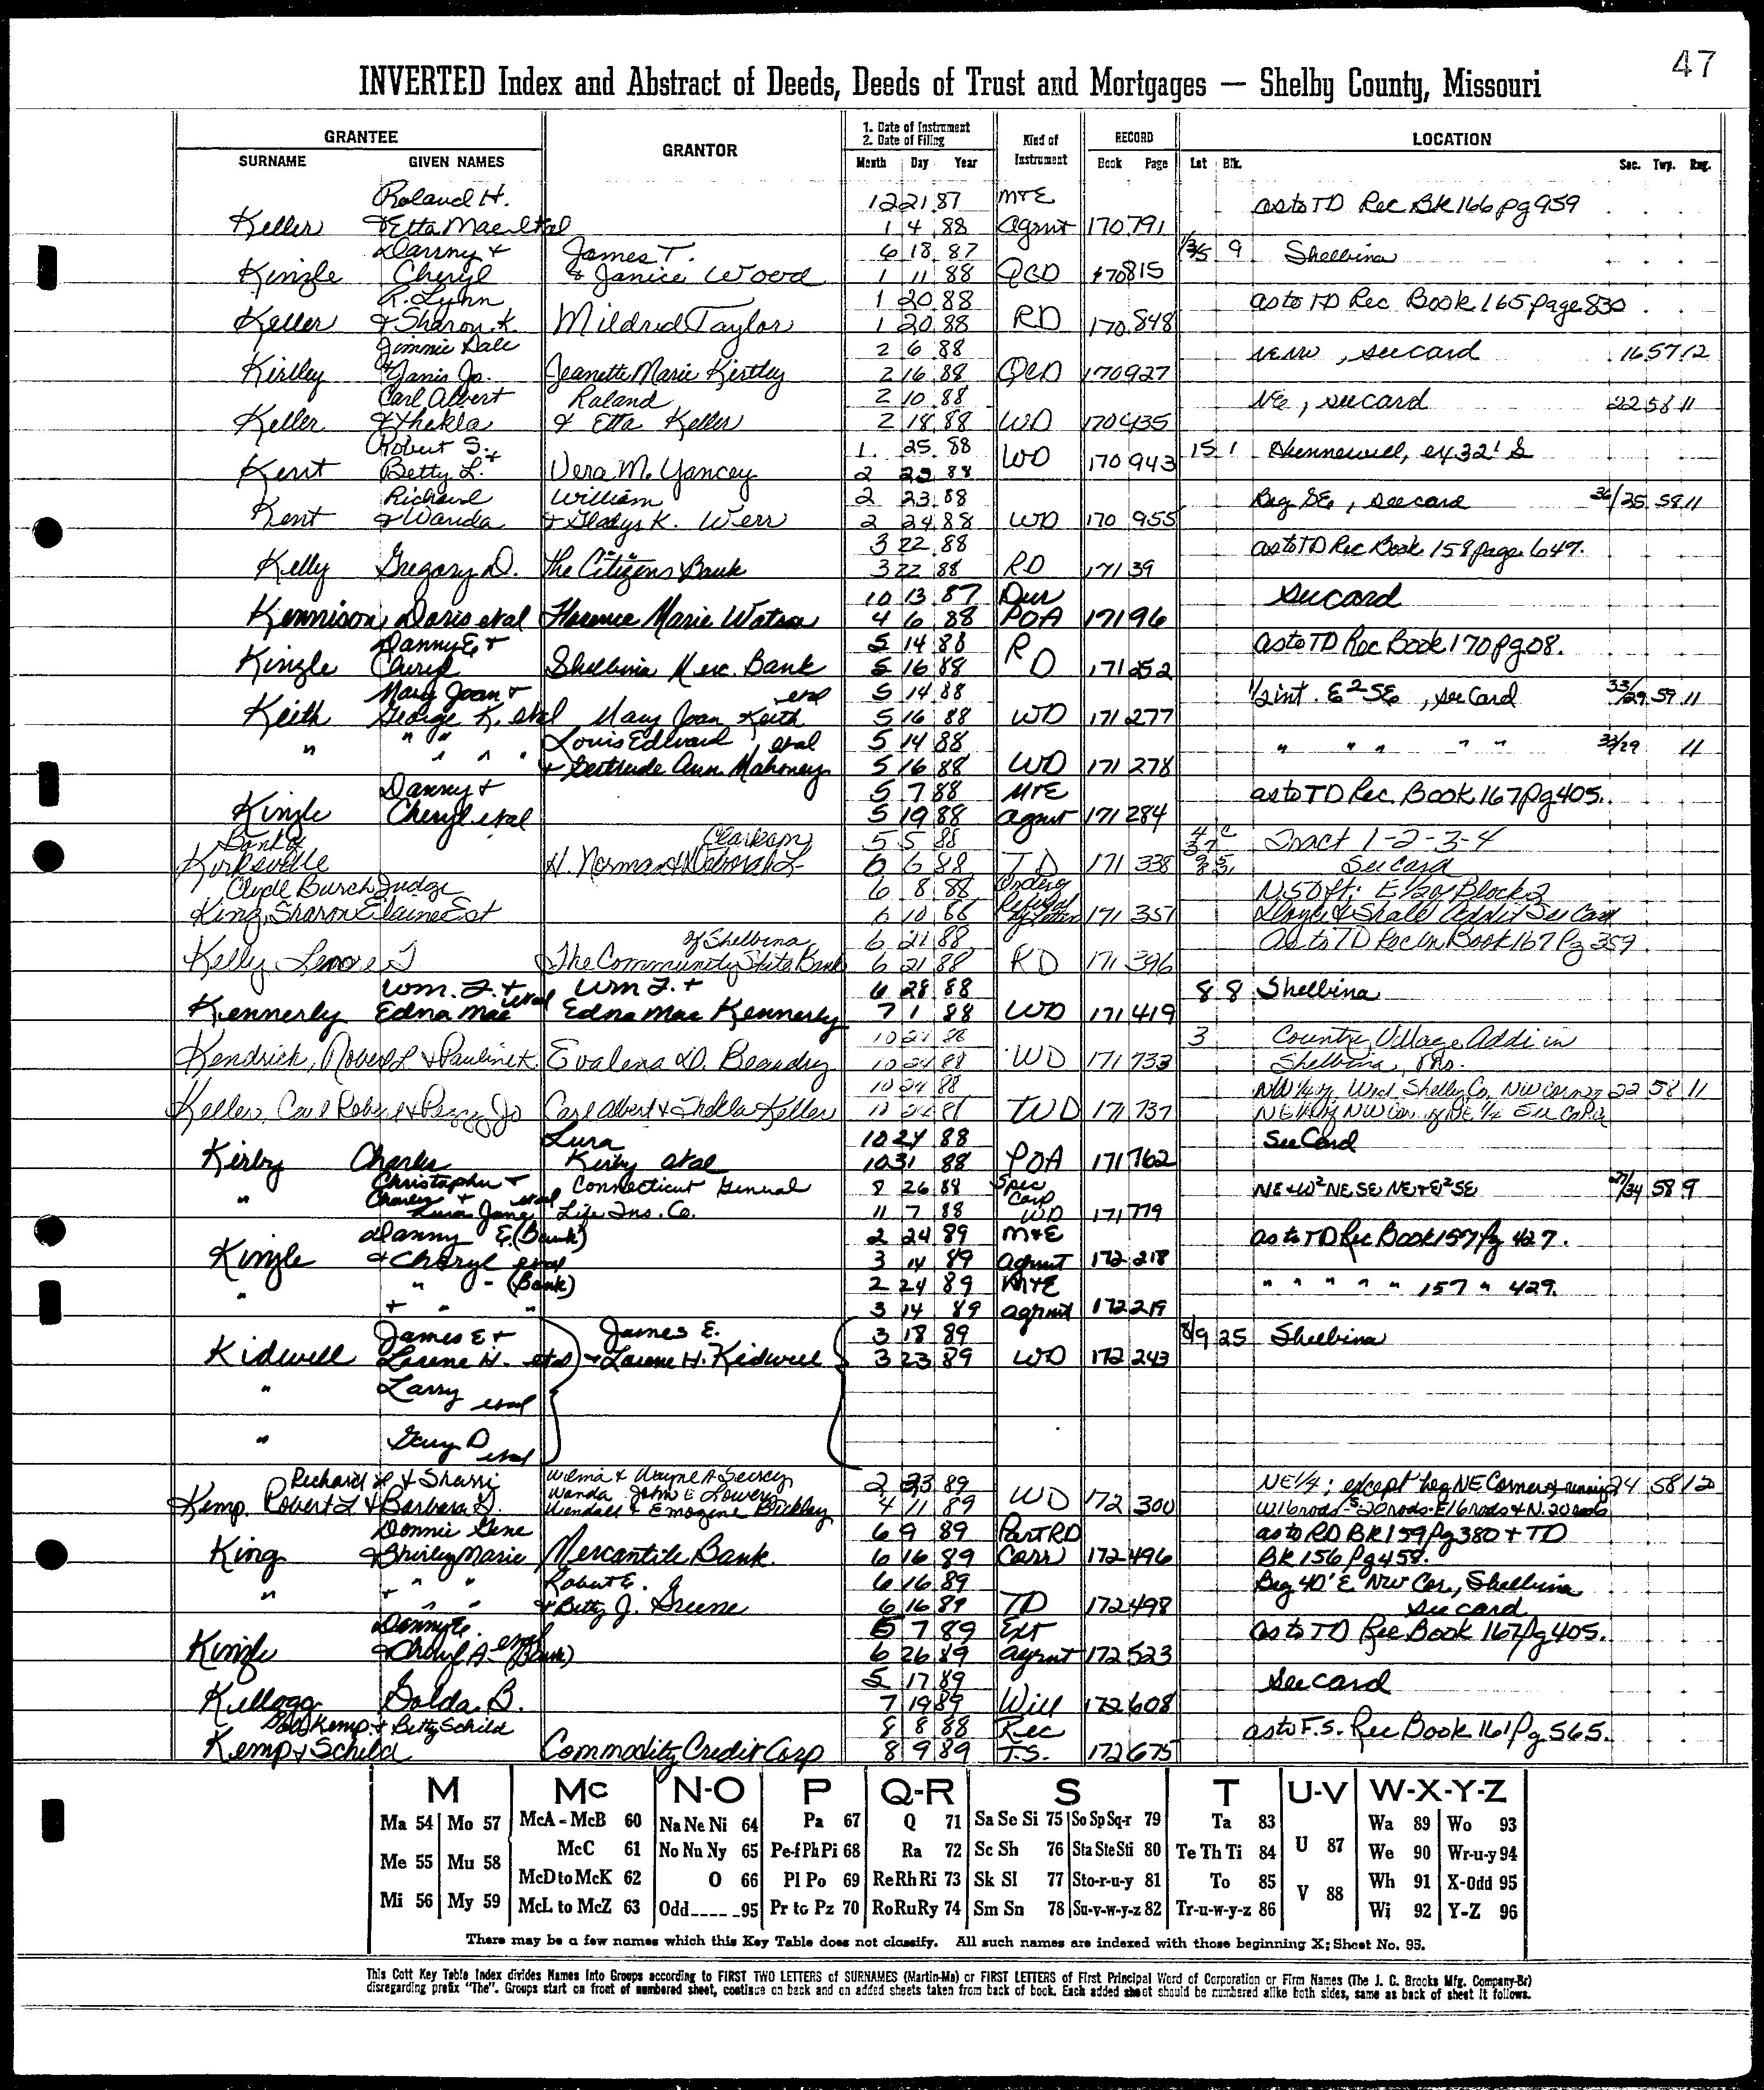 47
INVERTED Index and Abstract of Deeds, Deeds of Trust and Mortgages — Shelby County, Missouri
GRANTEE GRANTOR 1. Date of Instrument 2. Date of Filing Kind of Instrument RECORD LOCATION
SURNAME GIVEN NAMES Month Day Year Book Page Lot Blk. Sec. Twp. Rng.
Roland H. 12 21 87 M+E as to TD Rec Bk 166 pg 959
Keller & Etta Mae etal 1 4 88 Agmt 170 791
Danny + James T. 6 18 87 9 Shelbina
Kinzle Cheryl & Janice Wood 1 11 88 QCD 170 815
R. Lynn 1 20 88 as to TD Rec Book 165 page 830
Keller & Sharon K Mildred Taylor 1 20 88 RD 170 848
Jimmie Dale 2 6 88 NENW, see card 16 57 12
Kirtley & Janis Jo. Jeanette Marie Kirtley 2 16 88 QCD 170 927
Carl Albert Roland 2 10 88 NE, see card 22 58 11
Keller & Thekla & Etta Keller 2 18 88 WD 170 935
Robert S. + 1 25 88 15 1 Hunnewell, ex 32' S
Kent Betty L. Vera M. Yancey 2 23 88 WD 170 943
Richard William 2 23 88 Beg SE, see card 36/25 58 11
Kent & Wanda & Gladys K. Werr 2 24 88 WD 170 955
3 22 88 as to TD Rec Book 158 page 647.
Kelly Gregory D. The Citizens Bank 3 22 88 RD 171 39
10 13 87 Dur see card
Kennison Doris etal Florence Marie Watson 4 6 88 POA 171 96
Danny E + 5 14 88 as to TD Rec Book 170 pg 08.
Kinzle Cheryl Shelbina Merc. Bank 5 16 88 RD 171 252
Mary Joan + etal 5 14 88 1/2 int. E2 SE, see Card 33/29 59 11
Keith George K. etal Mary Joan Keith 5 16 88 WD 171 277
" " " Louis Edward etal 5 14 88 " " " " " 33/29 11
" " " + Gertrude Ann Mahoney 5 16 88 WD 171 278
Danny + 5 7 88 M+E as to TD Rec. Book 167 pg 405.
Kinzle Cheryl etal 5 19 88 Agmt 171 284
Bank of Clarkson 5 5 88 Tract 1-2-3-4
Kirksville H. Norman & Deborah L 6 6 88 TD 171 338 See Card
Clyde Burch Judge 6 8 88 Order of N. 50 ft; E 1/2 of Block 2
King, Sharon Elaine Est 6 10 88 Refusal of Letters 171 351 Addn See Card
of Shelbina 6 21 88 As to TD Rec in Book 167 Pg 359
Kelly Lenore T The Community State Bank 6 21 88 RD 171 396
Wm. F. + Wm F. + 6 28 88 8 8 Shelbina
Kennerly Edna Mae etal Edna Mae Kennerly 7 1 88 WD 171 419
10 21 88 3 Country Village Addi in
Kendrick, Robert L & Pauline K Evalena D. Beaudry 10 24 88 WD 171 733 Shelbina, Mo.
10 24 88 22 58 11
Keller, Carl Robert & Peggy Jo Carl Albert & Thekla Keller 10 24 88 TWD 171 737 See Card
Lura 10 24 88 See Card
Kirby Charles Kirby etal 10 31 88 POA 171 762
Christopher + Connecticut General 8 26 88 Spec Corp NE & W2 NE SE NE & E2 SE 27/34 58 9
" Charles + Lura Jane etal Life Ins. Co. 11 7 88 WD 171 779
Danny E. (Bank) 2 24 89 M+E as to TD Rec Book 157 pg 427.
Kinzle & Cheryl etal 3 14 89 Agmt 172 218
" " - (Bank) 2 24 89 M+E " " " " " 157 " 429.
+ " " 3 14 89 agmt 172 219
James E + James E. 3 18 89 8/9 25 Shelbina
Kidwell Larene H. etal & Larene H. Kidwell 3 23 89 WD 172 243
" Larry etal
" Gary D etal
Richard L & Sherri Wilma & Wayne A Searcy 2 23 89 NE 1/4; except beg NE Corner & running 24 58 12
Kemp, Robert L & Barbara Wanda John E Lowery Wendall & Emogene Brickley 4 11 89 WD 172 300 W 16 rods S 20 rods E 16 rods & N. 20 rods
Donnie Gene 6 9 89 Part RD as to RD Bk 159 pg 380 + TD
King & Shirley Marie Mercantile Bank. 6 16 89 Corr 172 496 Bk 156 pg 458.
" " " Robert E. 6 16 89 Beg 40' E NW Cor., Shelbina
+ " " & Betty J. Greene 6 16 89 TD 172 498 see card
Danny E. 5 7 89 Ext as to TD Rec Book 167 pg 405.
Kinzle & Cheryl A etal (Bank) 6 26 89 Agmt 172 523
5 17 89 see card
Kellogg Golda B. 7 19 89 Will 172 608
Bob Kemp + Betty Schild 8 8 88 Rec as to F.S. Rec Book 161 pg 565.
Kemp & Schild Commodity Credit Corp 8 9 89 F.S. 172 675
M Mc N-O P Q-R S T U-V W-X-Y-Z
Ma 54 Mo 57 McA - McB 60 Na Ne Ni 64 Pa 67 Q 71 Sa Se Si 75 So Sp Sq-r 79 Ta 83 U 87 Wa 89 Wo 93
Me 55 Mu 58 McC 61 No Nu Ny 65 Pe-f Ph Pi 68 Ra 72 Sc Sh 76 Sta Ste Sti 80 Te Th Ti 84 We 90 Wr-u-y 94
McD to McK 62 O 66 Pl Po 69 Re Rh Ri 73 Sk Sl 77 Sto-r-u-y 81 To 85 V 88 Wh 91 X-Odd 95
Mi 56 My 59 McL to McZ 63 Odd 95 Pr to Pz 70 Ro Ru Ry 74 Sm Sn 78 Su-v-w-y-z 82 Tr-u-w-y-z 86 Wi 92 Y-Z 96
There may be a few names which this Key Table does not classify. All such names are indexed with those beginning X; Sheet No. 95.
This Cott Key Table Index divides Names Into Groups according to FIRST TWO LETTERS of SURNAMES (Martin-Ma) or FIRST LETTERS of First Principal Word of Corporation or Firm Names (The J. C. Brooks Mfg. Company-Br)
disregarding prefix "The". Groups start on front of numbered sheet, continue on back and on added sheets taken from back of book. Each added sheet should be numbered alike both sides, same as back of sheet it follows.